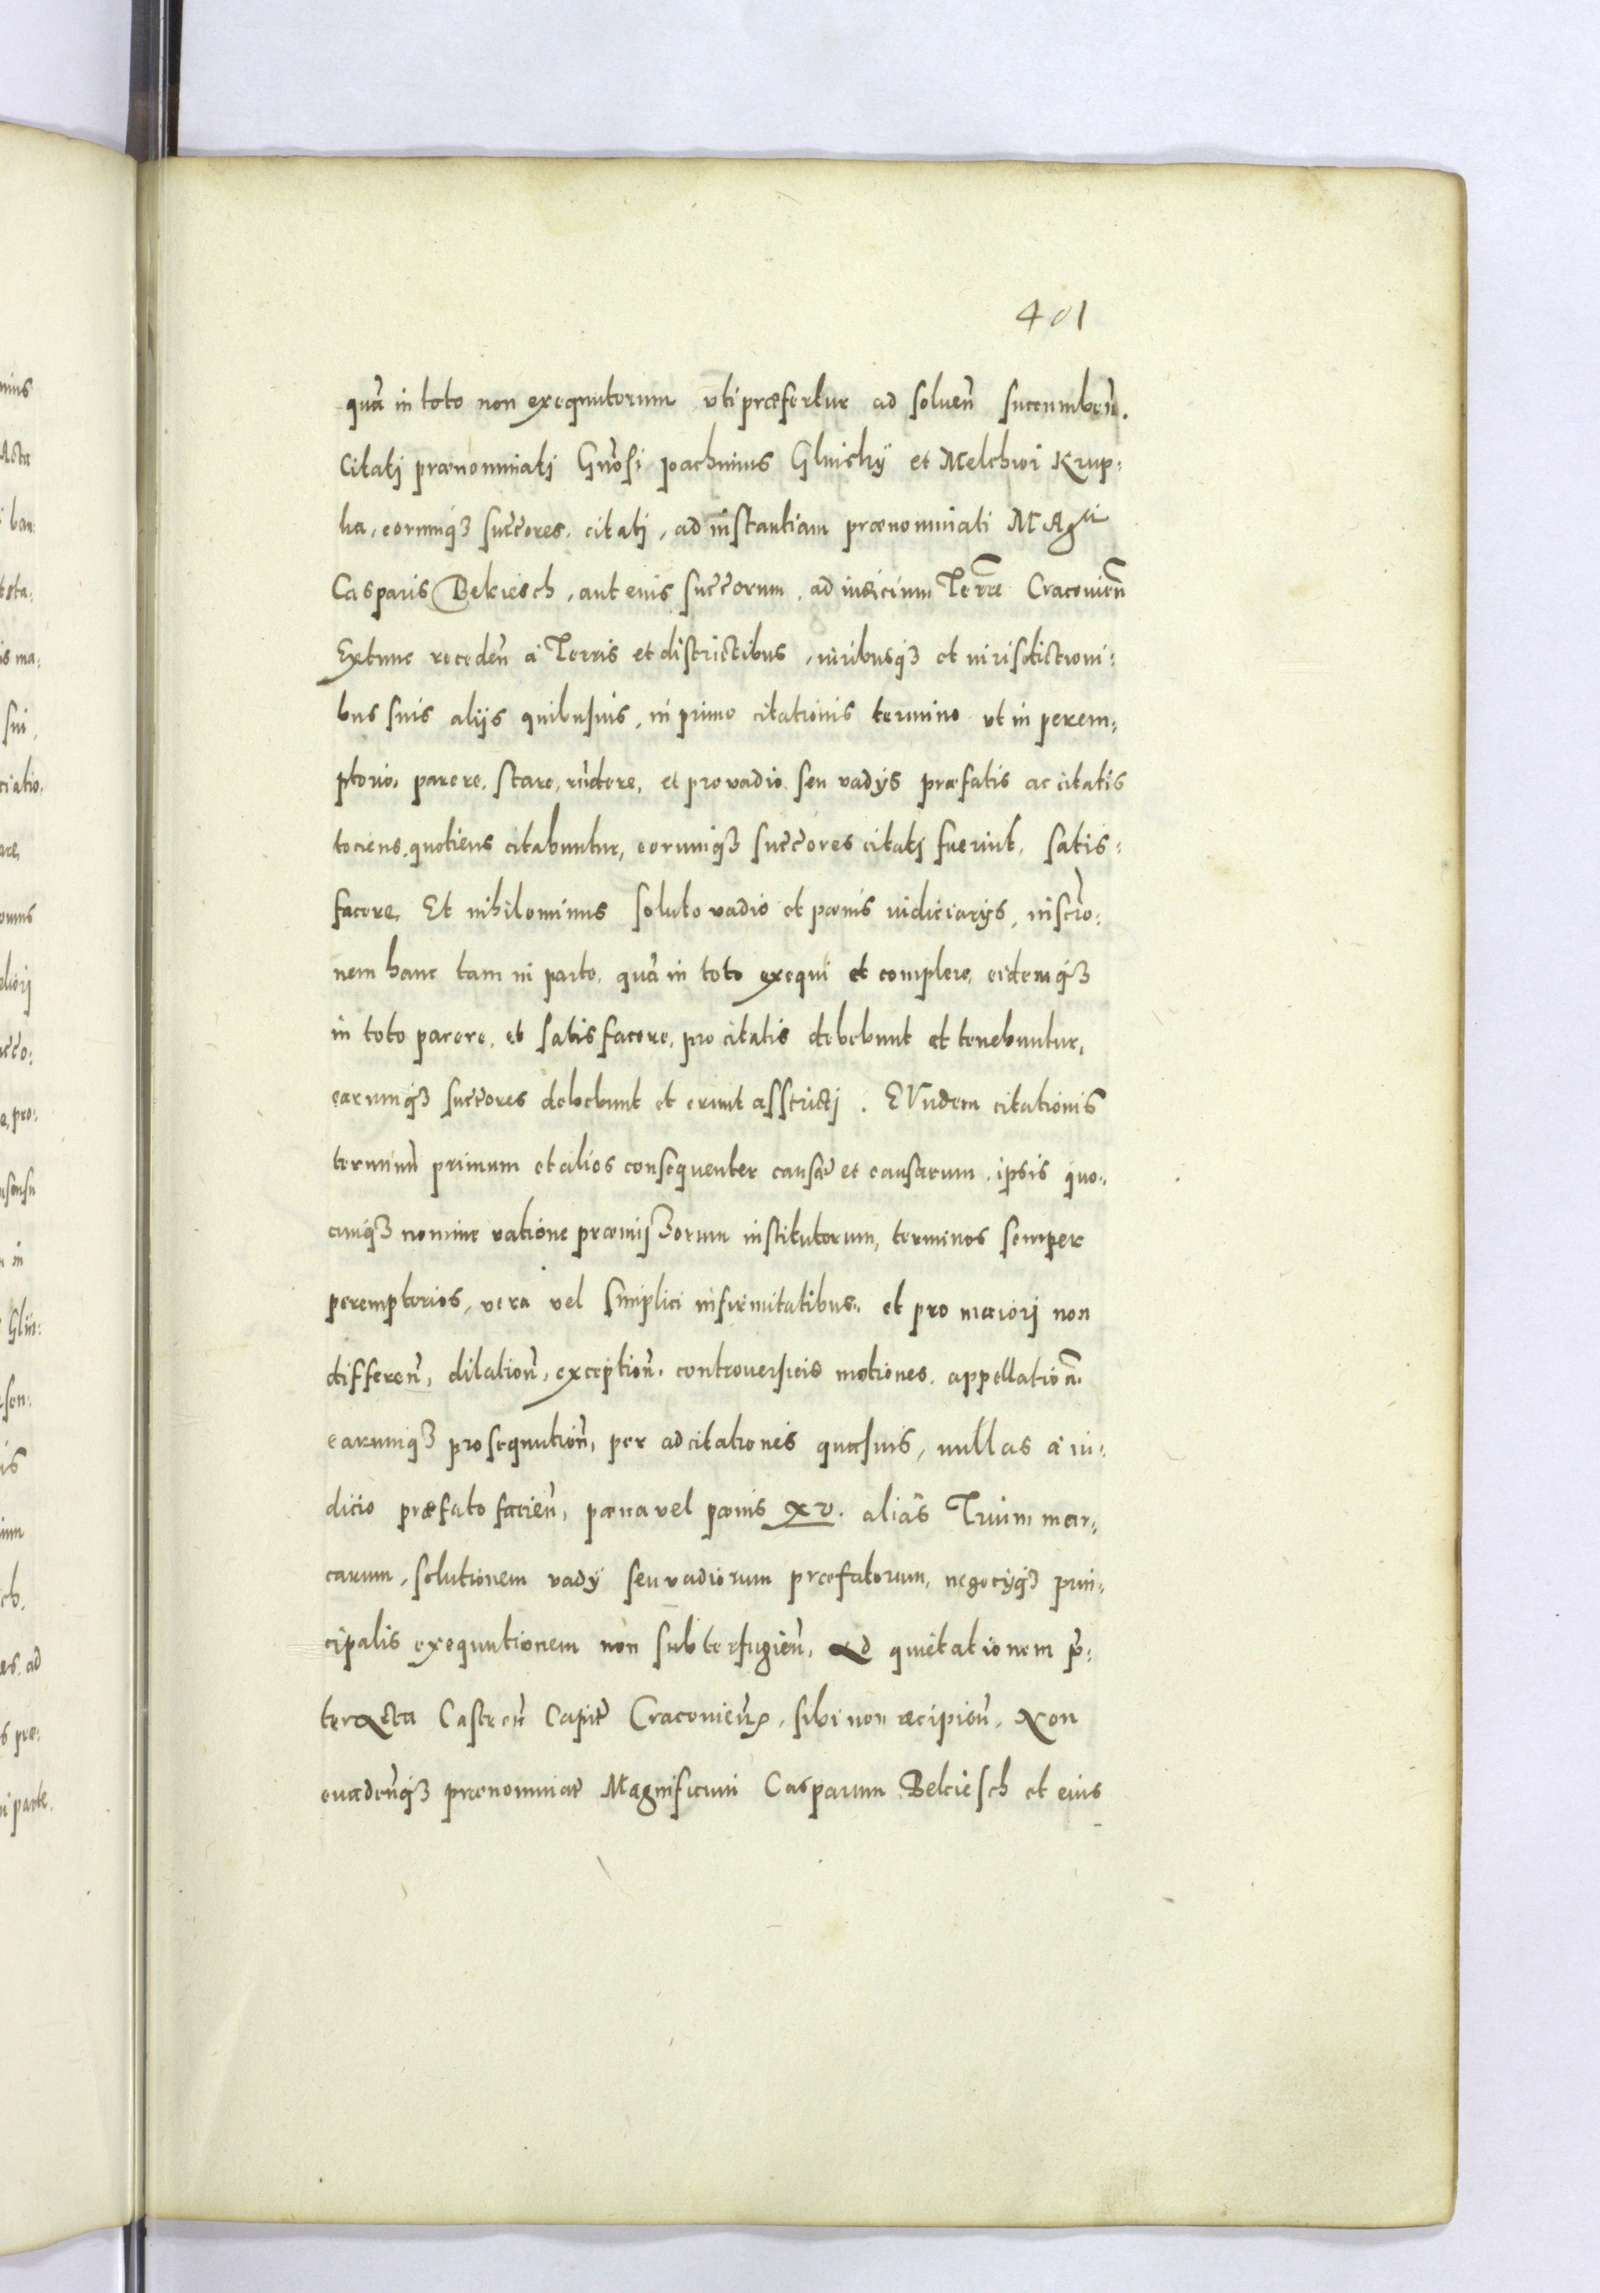 401
quā in toto non exequutorum uti præfertur ad soluen̄ succumben̄.
Citatj prænominatj Gn̄osi Joachimus Glinsky et Melchior Krup:
ka, eorumq3 succ̄ores. citatj, ad instantiam prænominati MAgci
Casparis Bekiesch, aut eius succ̄orum, ad iudicium Terræ Cracouien̄
Extunc receden̄ à Terris et districtibus, iuribusq3 et iurisdictioni:
bus suis alijs quibusuis, in primo citationis termino ut in perem:
ptorio, parere, stare, rn̄dere, et pro vadio seu vadijs præfatis ac citatis
tociens, quotiens citabuntur, eorumq3 succ̄ores citatj fuerint, satis:
facere. Et nihilominus soluto vadio et pœnis iudiciarijs, inscr̄o:
nem hanc tam in parte, quā in toto exequi et complere, eidemq3
in toto parere, et satisfacere, pro citatis debebunt et tenebuntur,
earumq3 succ̄ores debebunt et erunt asstrictj. EUndem citationis
terminū primum et alios consequenter causæ et causarum, ipsis quo:
cunq3 nomine ratione præmissorum institutorum, terminos semper
peremptorios, vera vel simplici infirmitatibus, et pro maiorj non
differen̄, dilation̄, exception̄, controuersieis motiones, appellation̄.
earumq3 prosequution̄, per adcitationes quasuis, nullas à iu:
dicio præfato facien̄, pœna vel pœnis xv. aliâs Trium mar,
carum, solutionem vadij seu vadiorum præfatorum, negocijq3 prin:
cipalis exequutionem non subterfugien̄, Ad quietationem p̄:
ter Acta Castren̄ Capit̄ Cracouien̄, sibi non recipien̄, Non
euaden̄q3 prænominat̄ Magnificum Casparum Bekiesch et eius